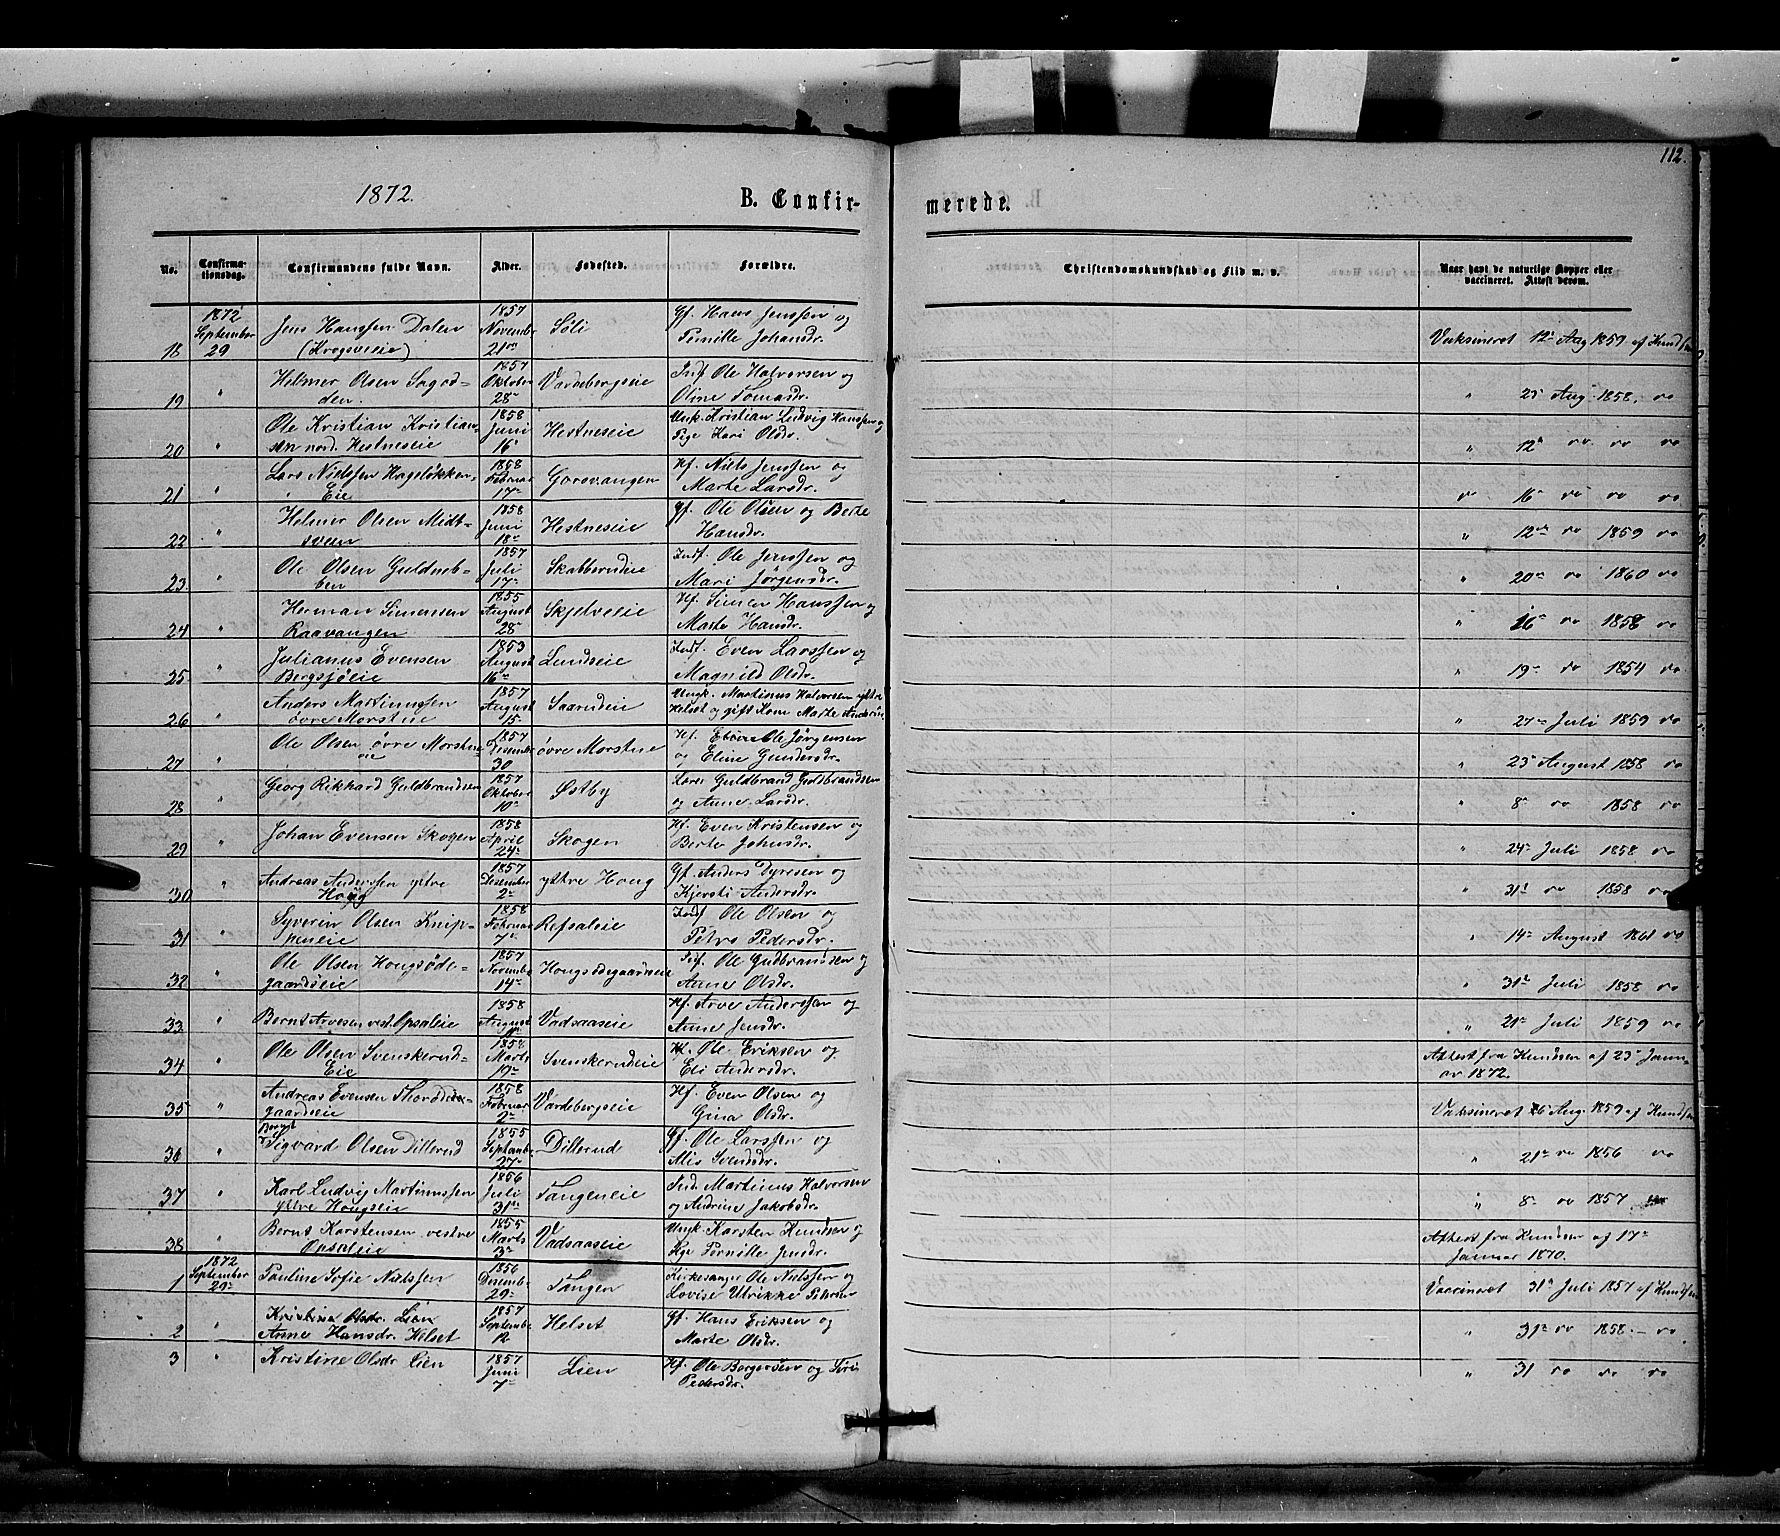 112.
1872.
B. Confir-
merede.
No.
Confirma-
tionsdag.
Confirmandens fulde Navn.
Alder.
Fødested.
Forældre.
Christendomskundskab og Flid m. v.
Naar havt de naturlige Kopper eller
vaccineret. Attest derom.
18 1872 September 29 Jens Hanssen Dalen (Krogsveie) 1857 November 21de Søli Gf. Hans Jenssen og Pernille Johansdr. Vaksineret 12te Aug 1859 af Knudsen
19 " Helmer Olsen Sagod-den. 1857 Oktober 28de Vardebergseie Indf. Ole Halvorsen og Oline Tomasdr. " 25 Aug. 1858. do
20 " Ole Kristian Kristian-sen nord. Hestneseie 1858 Juni 16 Hestneseie Ungk. Kristian Ludvig Hanssen og Pige Kari Olsdr. " 12te do do do
21 " Lars Nielssen Hageløkken-Eie 1858 Februar 17de Gorovangen Hf. Niels Jenssen og Marte Larsdr. " 16de do do do
22 " Helmer Olsen Midt-sveen 1858 Juni 18de Hestneseie Gf. Ole Olsen og Berte Hansdr. " 12te do 1859 do
23 " Ole Olsen Guldneb-ben 1857 Juli 17de Skabberudeie Indf. Ole Jenssen og Mari Jørgensdr. " 20de do 1860 do
24 " Herman Simensen Raavangen 1855 August 28de Skjelveeie Hf. Simen Hanssen og Marte Hansdr. " 16de do 1858 do
25 " Julianus Evensen Bergsjøeie 1853 August 16de Lundseie Indf. Even Larssen og Magnild Olsdr. " 19de do 1854 do
26 " Anders Martinussen øvre Morstueie 1857 August 15de Saarudeie Ungk. Martinus Halvorsen ytre Helset og gift Kone Marte " 27de Juli 1859 do
27 " Ole Olsen øvre Morstu-eie 1857 Desember 30 øvre Morstueie Hf. Ole Jørgensen og Eline Gundersdr. " 23de August 1858 do
28 " Georg Rikhard Guldbrandsen 1857 Oktober 10de Østby Guldbrand Guldbrandsen og Anne Larsdr. " 8de do 1858 do
29 " Johan Evensen Skogen 1858 April 24de Skogen Hf. Even Kristensen og Berte Johnsdr. " 24de Juli 1858 do
30 " Andreas Anderssen ytre Houg 1857 Desember 2de ytre Houg Gf. Anders Dyresen og Kjersti Andersdr. " 31te do 1858 do
31 " Syverin Olsen Knip-peneie 1858 Februar 7de Refsaleie Indf. Ole Olsen og Petra Pedersdr. " 14de August 1861 do
32 " Ole Olsen Hougsøde-gaardseie 1857 November 14de Hougsødegaardseie Ole Gudbrandsen og Anne Olsdr. " 31te Juli 1858 do
33 " Bernt Arvesen vest. Opsaleie 1858 August Vadsaaseie Hf. Arve Anderssen og Anne Jensdr. " 21de Juli 1859 do
34 " Ole Olsen Svenskerud-Eie 1858 Marts 17de Svenskerudeie Hf. Ole Eriksen og Eli Andersdr. Attest fra Knudsen af 23de Janu-ar 1872.
35 " Andreas Evensen Thorøde-gaardseie 1858 Februar 2de Vardebergseie Hf. Even Olsen og Gina Olsdr. Vaksineret 26 Aug. 1859 af Knudsen
36 " Bernt Sigvard Olsen Dillerud 1855 September 27de Dillerud Gf. Ole Larssen og Alis Svendsdr. " 21de do 1856 do
37 " Karl Ludvig Martinussen ytre Hougseie 1856 Juli 31te Tangeneie Ind. Martinus Halvorsen og Andrine Jakobsdr. " 8de do 1857
38 " Bernt Karstensen vestre Opsaleie 1855 Marts 3de Vadsaaseie Ungk. Karsten Knudsen og Pge Pernille Jensdr. Attest fra Knudsen af 17de Januar 1870.
1 1872 September 29de Pauline Sofie Nielssen 1856 Desember 29de Tangen Kirkesanger Ole Nielssen og Lovise Ulrikke Petersen Vaccineret 31te Juli 1857 af Knudsen
2 " Kristine Olsdr. Lien Anne Hansdr. Helset 1857 September 12 Helset Gf. Hans Eriksen og Marte Olsdr. " 31te do 1858. do
3 " Kristine Olsdr Lien 1857 Juni 7de Lien Hf. Ole Borgersen og Siri Pedersdr. " 31 do do do